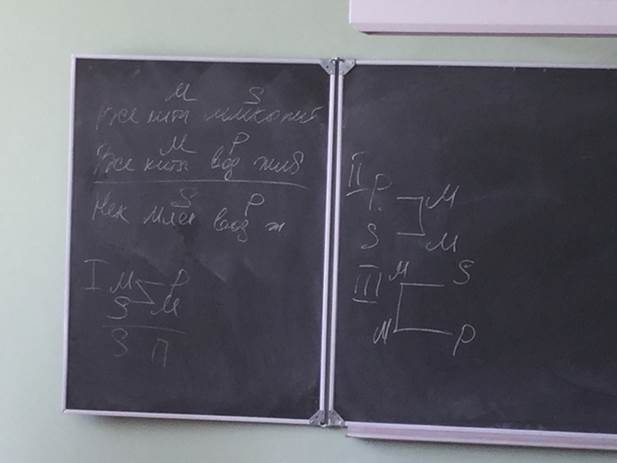 М S
Все киты млекопит
М Р
Все киты вод жив
S Р
Нек млек вод ж
I М Р
S М
S П
II Р М
S М
III М S
М Р